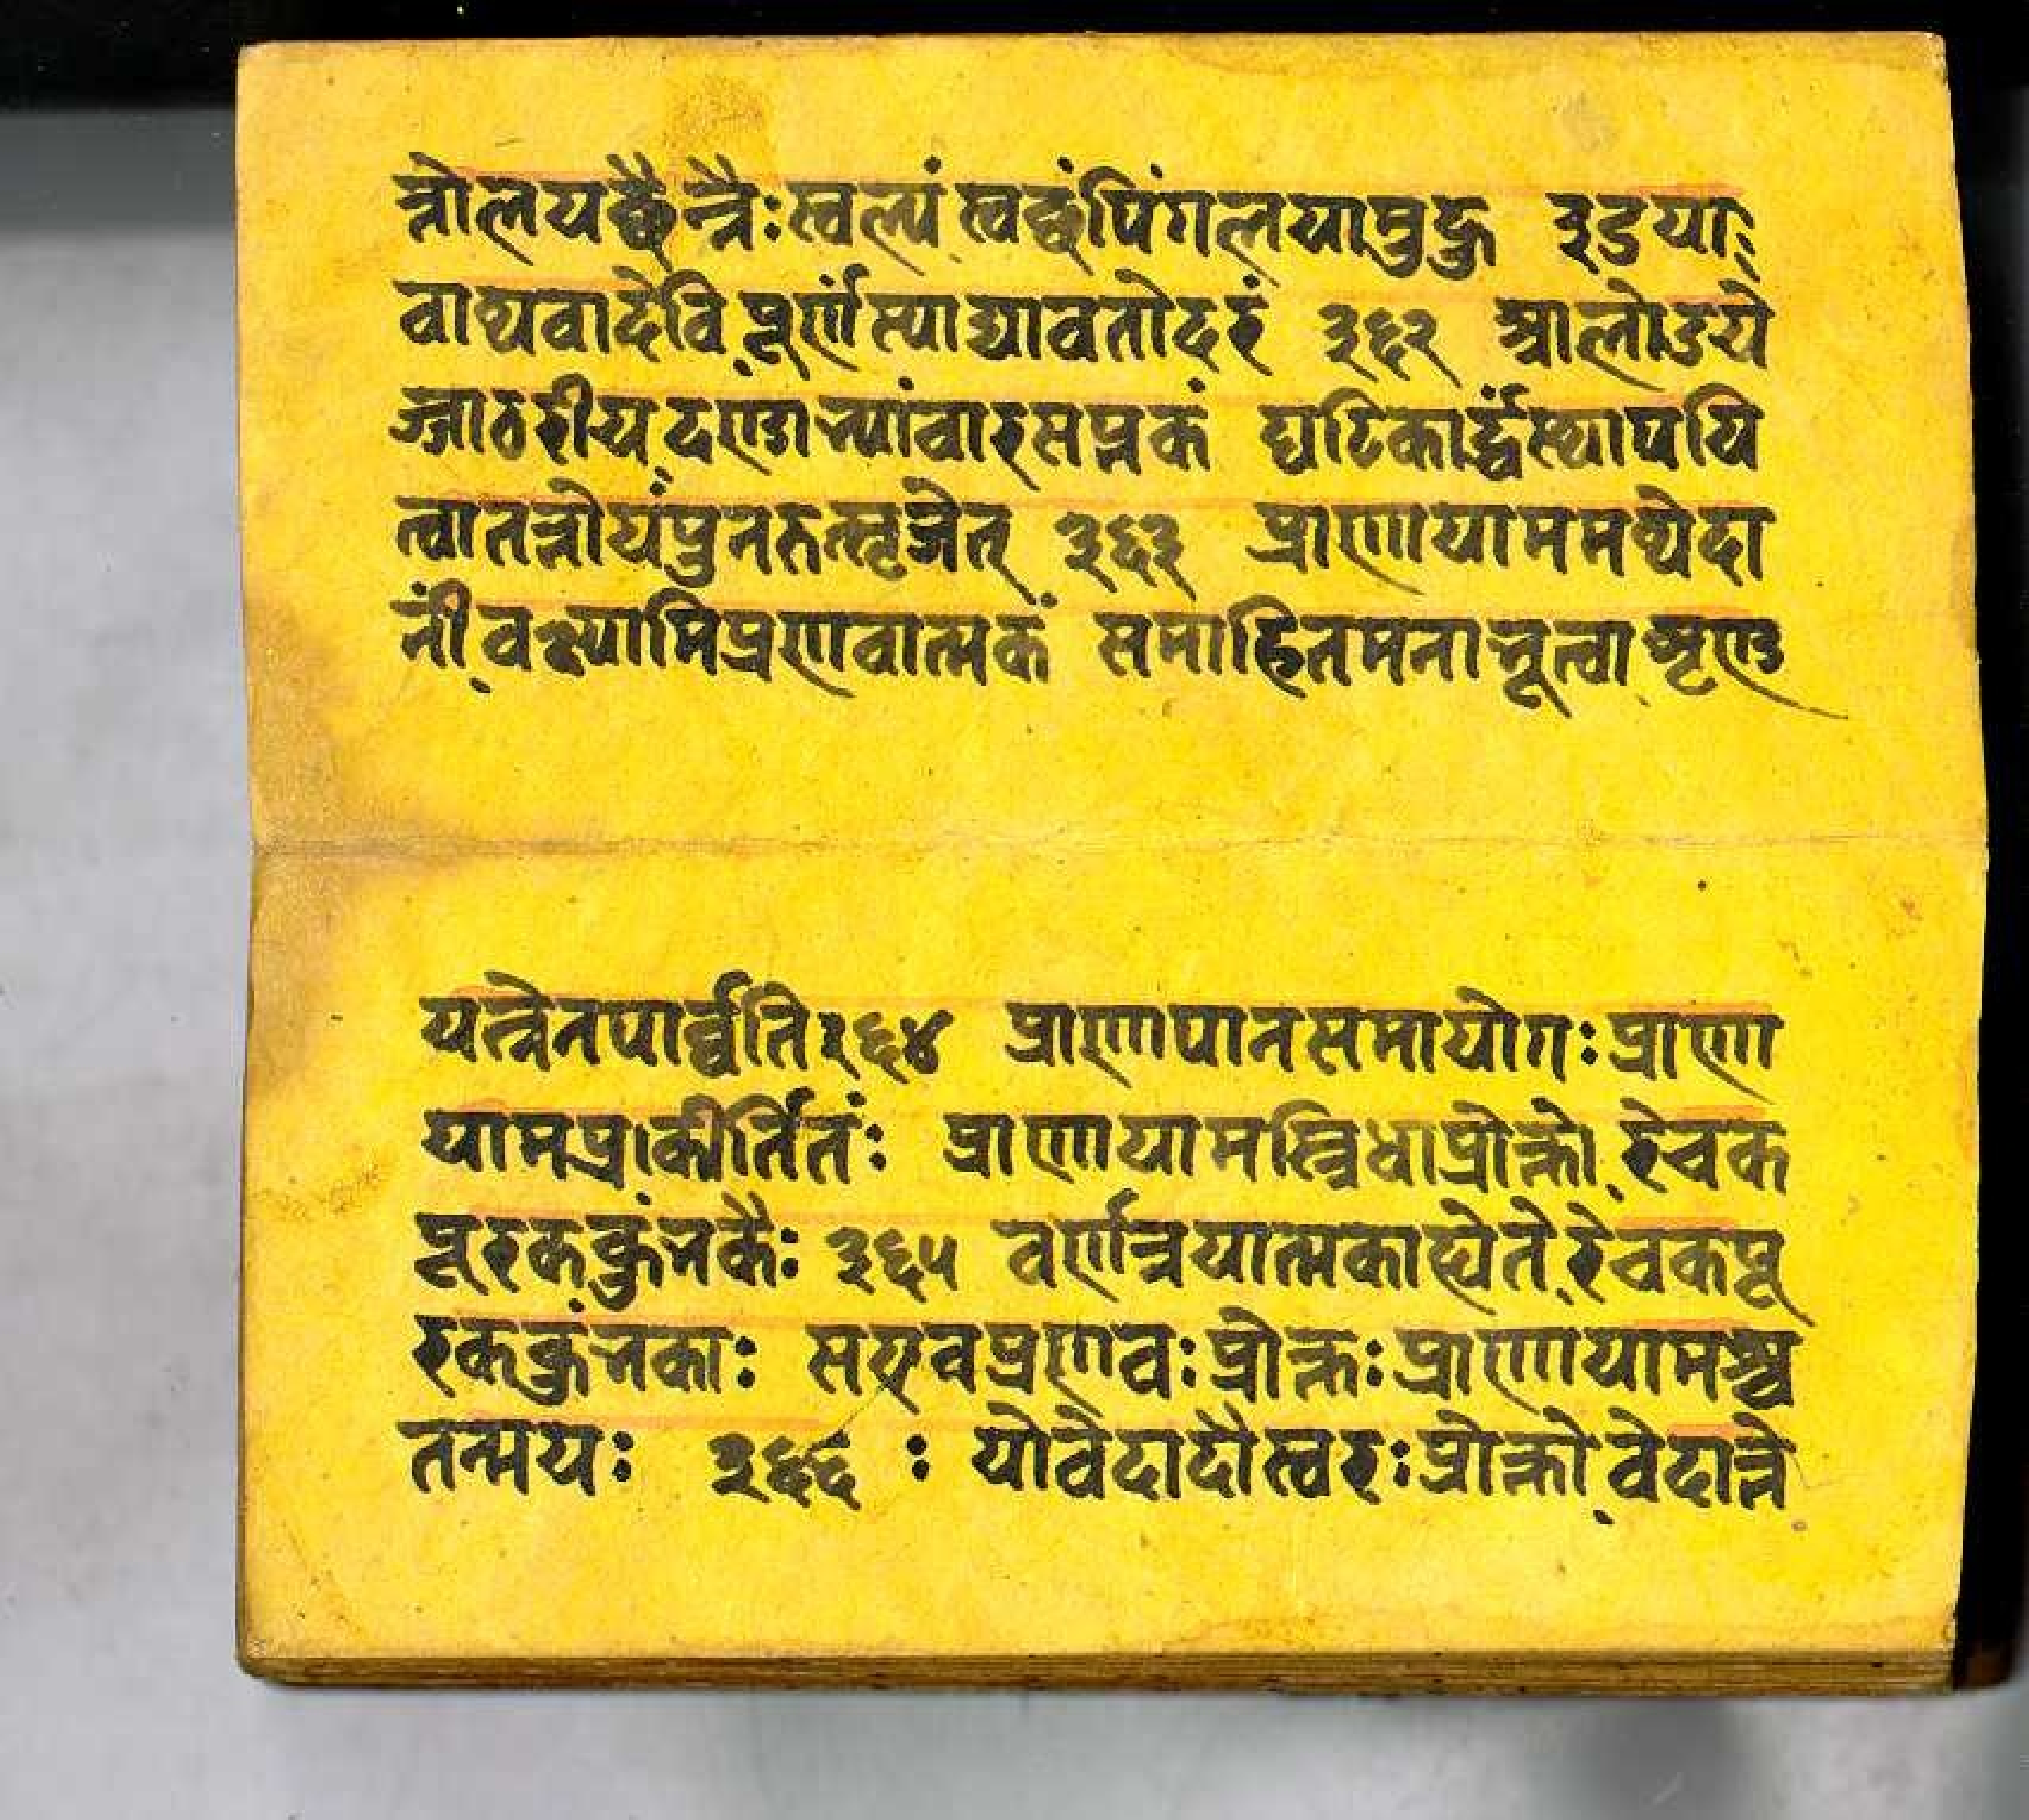 न्तोलयछ्वैन्त्रैः स्वल्पं स्वल्पं पिंगलयामुहु इडया
वाथवादेवि पूर्णं स्याद्यावतोदरं ३६२ आलोडये
ज्जाठरीय दण्डाभ्यां वारसप्तकं घटिकार्द्धं स्थापयि
त्वा तत्तोयं पुनरुत्सृजेत् ३६३ प्राणायाममथेदा
नीं वक्ष्यामि प्रणवात्मकं समाहितमना भूत्वा शृणु
यत्नेन पार्व्वति ३६४ प्राणापानसमायोगः प्राणा
यामप्राकीर्तितंः प्राणायामस्त्रिधा प्रोक्तो रेचक
पूरककुंभकैः ३६५ वर्णत्रयात्मका ह्येते रेचकपू
रककुंभकाः सएव प्रणवः प्रोक्तः प्राणायामश्च
तन्मयः ३६६ ः यो वेदादौ स्वरः प्रोक्तो वेदान्ते